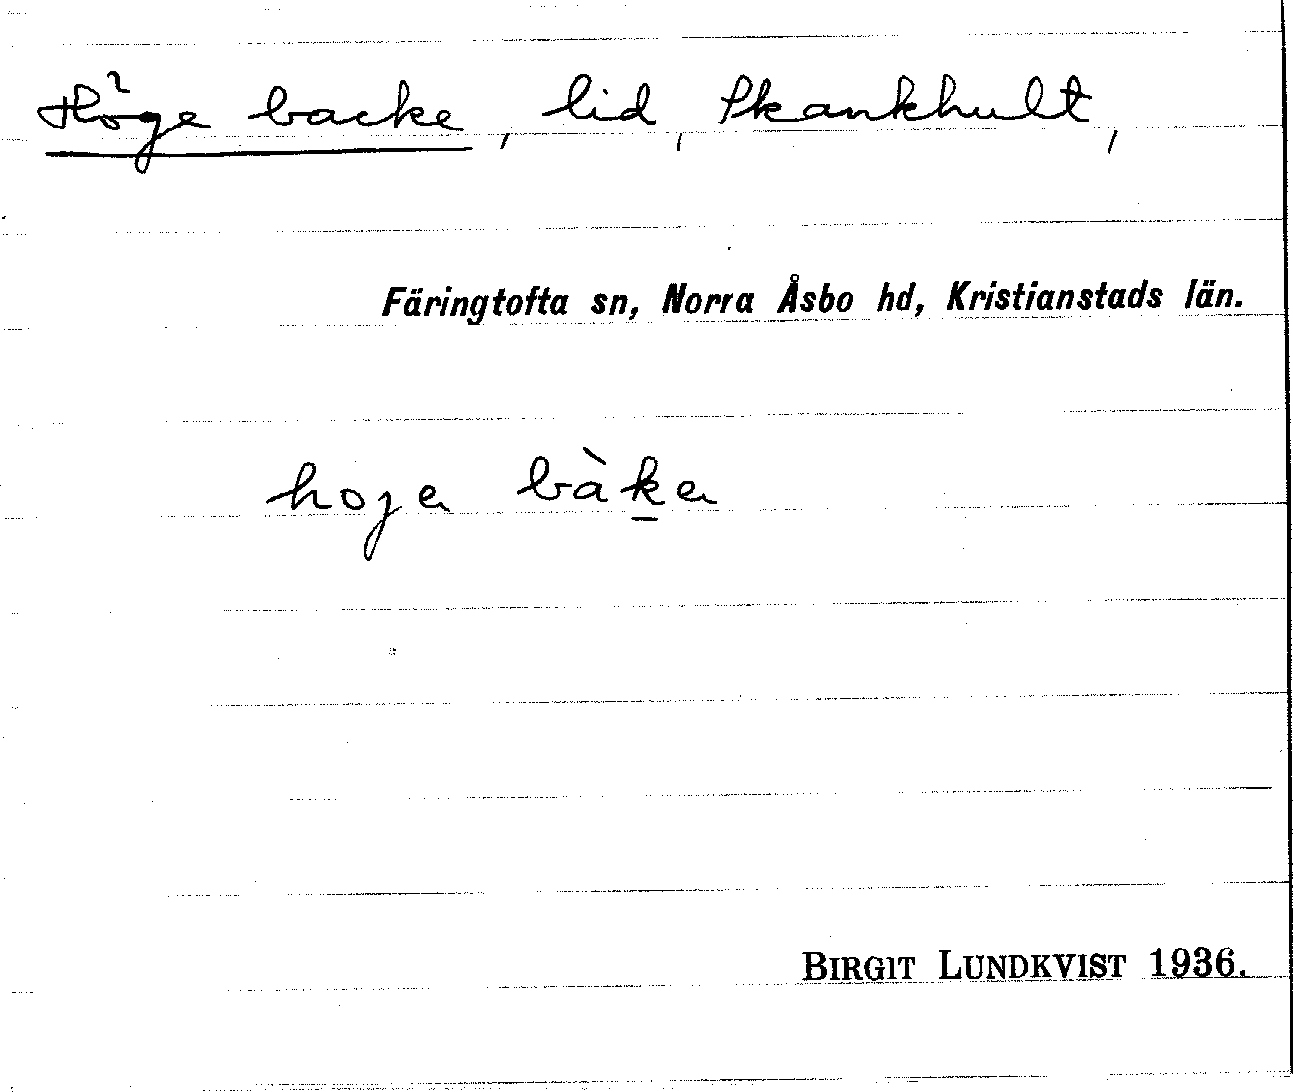 Höge backe, lid, Skankhult,
Färingtofta sn, Norra Åsbo hd, Kristianstads län.
hoja bàka
BIRGIT LUNDKVIST 1936.